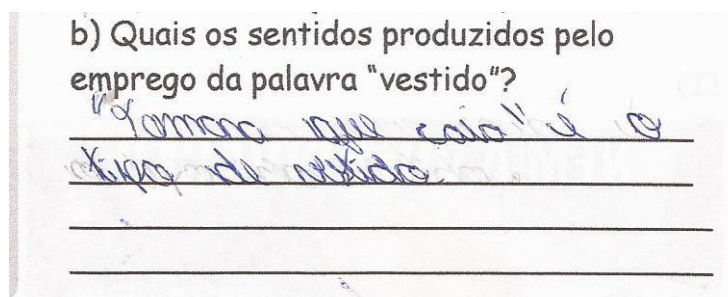 b) Quais os sentidos produzidos pelo
emprego da palavra "vestido"?
"Tomara que caia" é o
tipo de vestido.